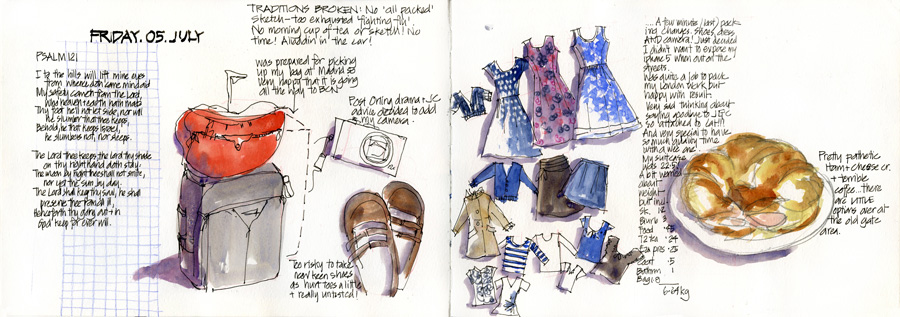 FRIDAY. 05. JULY
TRADITIONS BROKEN: No 'all packed'
Sketch - too exhausted 'fighting - ill'
No morning cup of tea or sketch! No
time! Aladdin' in the car!
PSALM 121
I to the hills will lift mine eyes
from whence doth come mine aid
My safety cometh from the Lord,
who heaven earth hath made
Thy foot he'll not let slide, nor will
he slumber that thee keeps.
Behold, he that keeps Israel,
he slumbers not, nor sleeps.
The Lord thee keeps, the Lord thy shade
on thy right hand doth stay:
The moon by night thee shall not smite,
nor yet the sun by day.
The Lord shall keep thy soul, he shall
preserve thee from all ill,
Henceforth thy going out + in
God keep for ever will.
I was prepared for picking
up my bag at Madrid so
very happy that it is going
all the way to BCN
Post Online drama + JC
advice decided to add
my camera.
Too risky to take
new keen shoes
as hurt toes a little
+ really untested!
.... A few minute (last) pack-
ing changes. Shoes, dress
AND camera! Just decided
I didn't want to expose my
iphone 5 when out on the
streets.
Was quite a job to pack
my London stuff but
happy with result.
Very sad thinking about
saying goodbye to
so
And very special to have
so much quality time
with a wee one.
My suitcase
was 22.5
A bit worried
about
weight -
but incl.
Sk. 1.2
Food .45
T2 tea .24
.25
Coat .5
Bottom 1
Bag
6.24kg
Pretty pathetic
Ham + cheese cr.
+ terrible
coffee.. there
are LITTLE
options over at
the old gate
area.